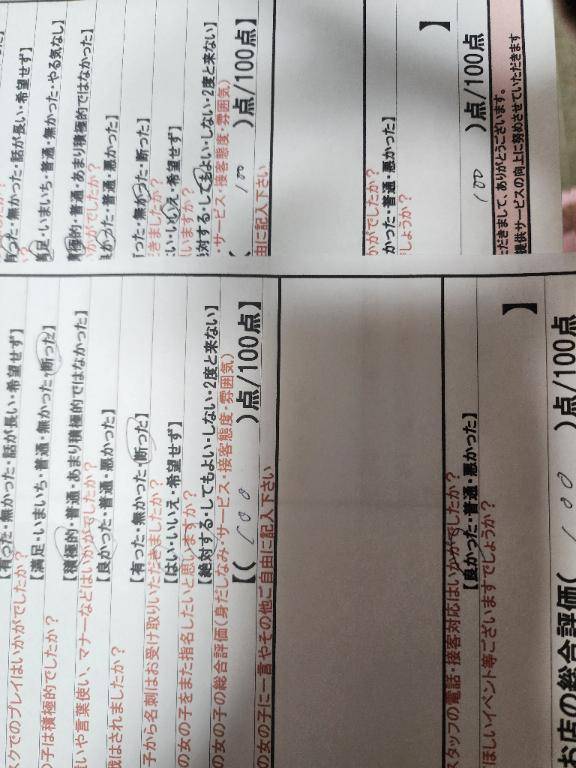 【有った・無かった・話が長い・希望せず】
クでのプレイはいかがでしたか？
【満足・いまいち・普通・無かった・断った】
の子は積極的でしたか？
【積極的・普通・あまり積極的ではなかった】
いや言葉使い、マナーなどはいかがでしたか？
【良かった・普通・悪かった】
はされましたか？
【有った・無かった・断った】
子から名刺はお受け取りいただきましたか？
【はい・いいえ・希望せず】
の女の子をまた指名したいと思いますか？
【絶対する・してもよい・しない・2度と来ない】
の女の子の総合評価(身だしなみ・サービス・接客態度・雰囲気)
【( 100 )点/100点】
の女の子に一言やその他ご自由に記入下さい
スタッフの電話・接客対応はいかがでしたか？
【良かった・普通・悪かった】
ほしいイベント等ございますでしょうか？
】
お店の総合評価( 100 )点/100点
った・無かった・話が長い・希望せず】
満足・いまいち・普通・無かった・やる気なし】
積極的・普通・あまり積極的ではなかった】
いかがでしたか？
良かった・普通・悪かった】
った・無かった・断った】
きましたか？
い・いいえ・希望せず】
いますか？
絶対する・してもよい・しない・2度と来ない】
・サービス・接客態度・雰囲気)
( 100 )点/100点】
由に記入下さい
かがでしたか？
かった・普通・悪かった】
しょうか？
】
100 )点/100点
ただきまして、ありがとうございます。
提供サービスの向上に努めさせていただきます